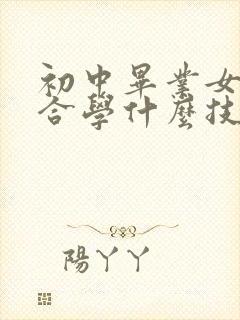 初中畢業女
合學什麼技
陽丫丫